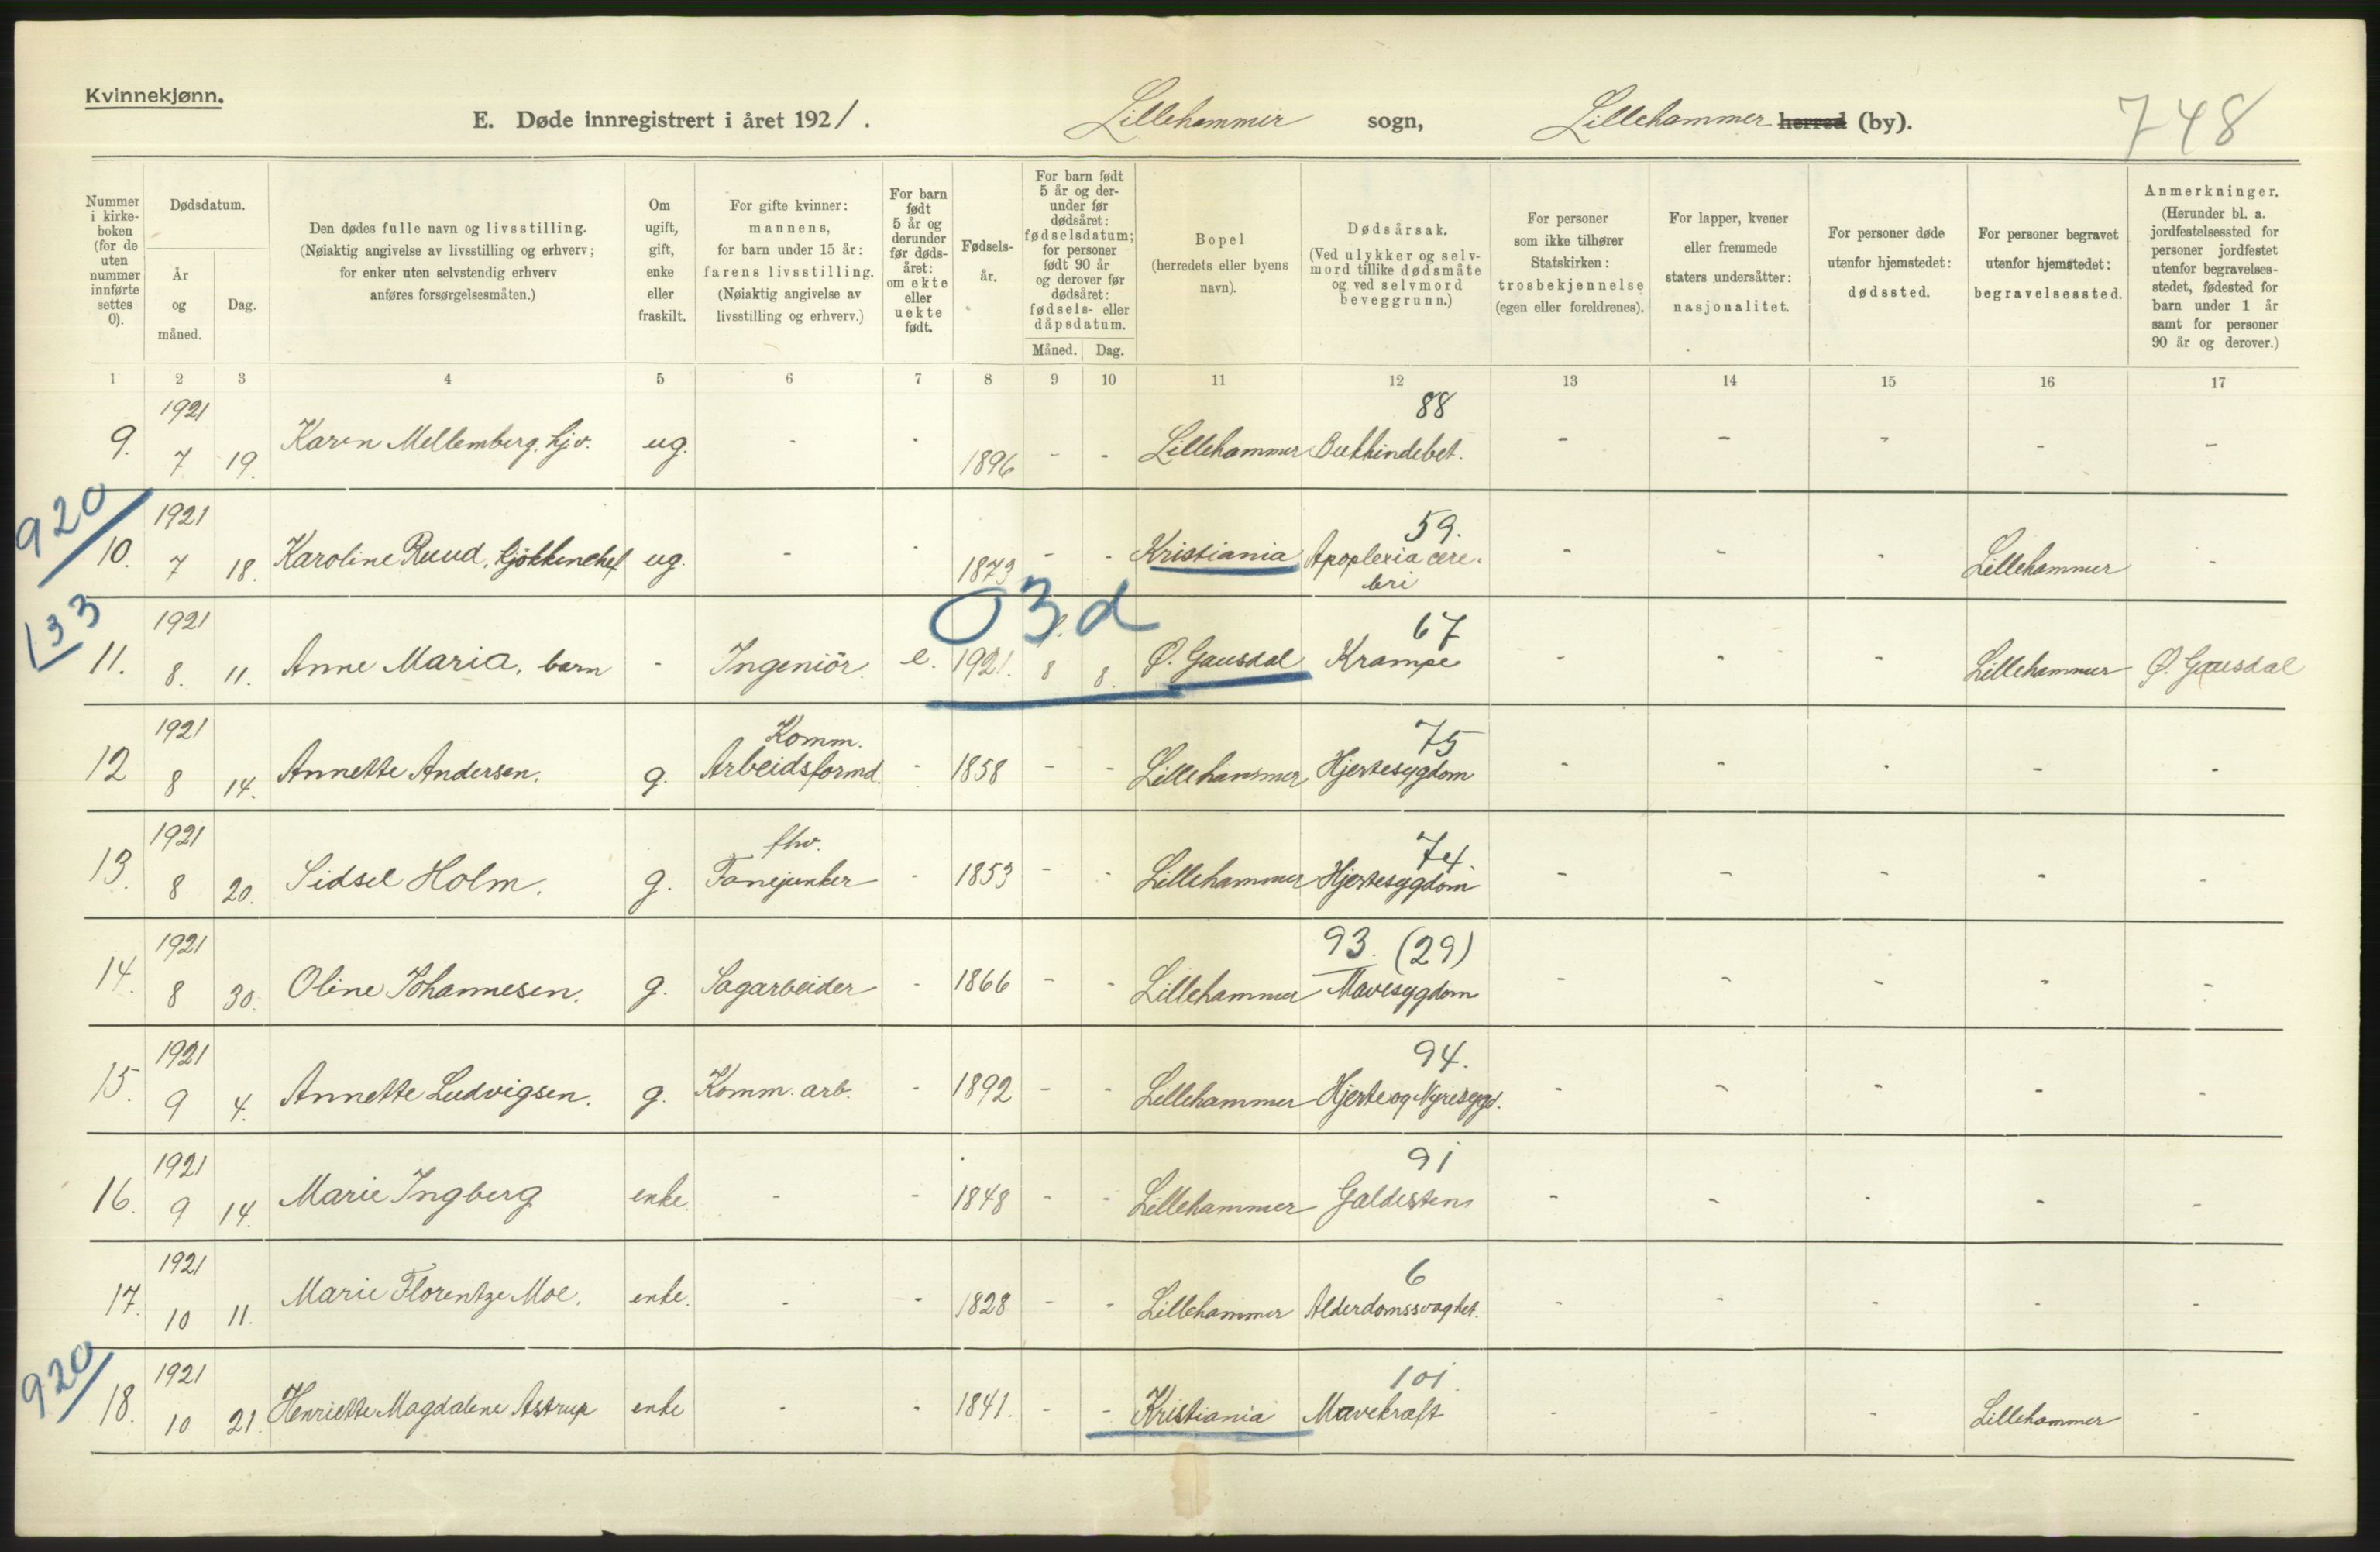 Kvinnekjønn.
E. Døde innregistrert i året 1921. Lillehammer sogn, Lillehammer herred (by). 748
Nummer i kirke-boken (for de uten nummer innførte settes 0).
Dødsdatum.
År og måned.
Dag.
Den dødes fulle navn og livsstilling.
(Nøiaktig angivelse av livsstilling og erhverv;
for enker uten selvstendig erhverv
anføres forsørgelsesmåten.)
Om ugift, gift, enke eller fraskilt.
For gifte kvinner: mannens,
for barn under 15 år: farens livsstilling.
(Nøiaktig angivelse av livsstilling og erhverv.)
For barn født 5 år og derunder før døds-året: om ekte eller uekte født.
Fødsels-år.
For barn født 5 år og der-under før dødsåret: fødselsdatum; for personer født 90 år og derover før dødsåret: fødsels- eller dåpsdatum.
Måned. Dag.
Bopel
(herredets eller byens navn).
Dødsårsak.
(Ved ulykker og selv-mord tillike dødsmåte og ved selvmord beveggrunn.)
For personer som ikke tilhører Statskirken: trosbekjennelse (egen eller foreldrenes).
For lapper, kvener eller fremmede staters undersåtter: nasjonalitet.
For personer døde utenfor hjemstedet: dødssted.
For personer begravet utenfor hjemstedet: begravelsessted.
Anmerkninger.
(Herunder bl. a. jordfestelsessted for personer jordfestet utenfor begravelses-stedet, fødested for barn under 1 år samt for personer 90 år og derover.)
1 2 3 4 5 6 7 8 9 10 11 12 13 14 15 16 17
1921 88
9. 7 19. Karen Mellemberg, hjv. ug. - - 1896 - - Lillehammer Bukhindebet. - - - - -
920
1921 59.
10. 7 18. Karoline Ruud, kjøkkenchef ug. - - 1873 - - Kristiania Apoplexia cere- - - - Lillehammer -
bri
133 03d
1921 67
11. 8. 11. Anne Maria, barn - Ingeniör. e. 1921. 8 8. Ø. Gausdal Krampe - - - Lillehammer Ø. Gausdal
1921 Komm. 75
12 8 14. Annette Andersen. g. Arbeidsformd. - 1858 - - Lillehammer Hjertesygdom - - - - -
1921 fhv. 74.
13. 8 20. Sidsel Holm. g. Fanejunker - 1853 - - Lillehammer Hjertesygdom - - - - -
1921 93. (29)
14. 8 30. Oline Johannesen. g. Sagarbeider - 1866 - - Lillehammer Mavesygdom - - - - -
1921 94.
15. 9 4. Annette Ludvigsen. g. Komm. arb. - 1892 - - Lillehammer Hjerte og Nyresygd. - - - - -
1921 91
16. 9 14. Marie Ingberg enke. - - 1848 - - Lillehammer Galdesten - - - - -
1921 6
17. 10 11. Marie Florentze Moe. enke. - - 1828 - - Lillehammer Alderdomssvaghet. - - - - -
920
1921 101.
18. 10 21. Henriette Magdalene Astrup enke - - 1841. - - Kristiania Mavekræft - - - Lillehammer -